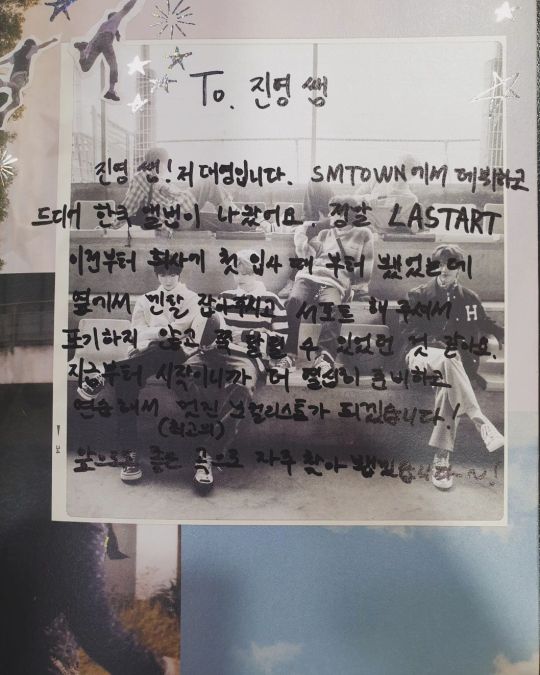 To. 진영 쌤
진영 쌤! 저 대영입니다. SMTOWN에서 데뷔하고
드디어 한국 앨범이 나왔어요. 정말 LASTART
이전부터 회사에 첫 입사 때 부터 뵀었는데
옆에서 멘탈 감싸주시고 서포트 해 주셔서
포기하지 않고 쭉 달릴 수 있었던 것 같아요.
지금부터 시작이니까 더 열심히 준비하고
연습해서 멋진 보컬리스트가 되겠습니다!
(최고의)
앞으로도 좋은 곡으로 자주 찾아 뵙겠습니다~!
H